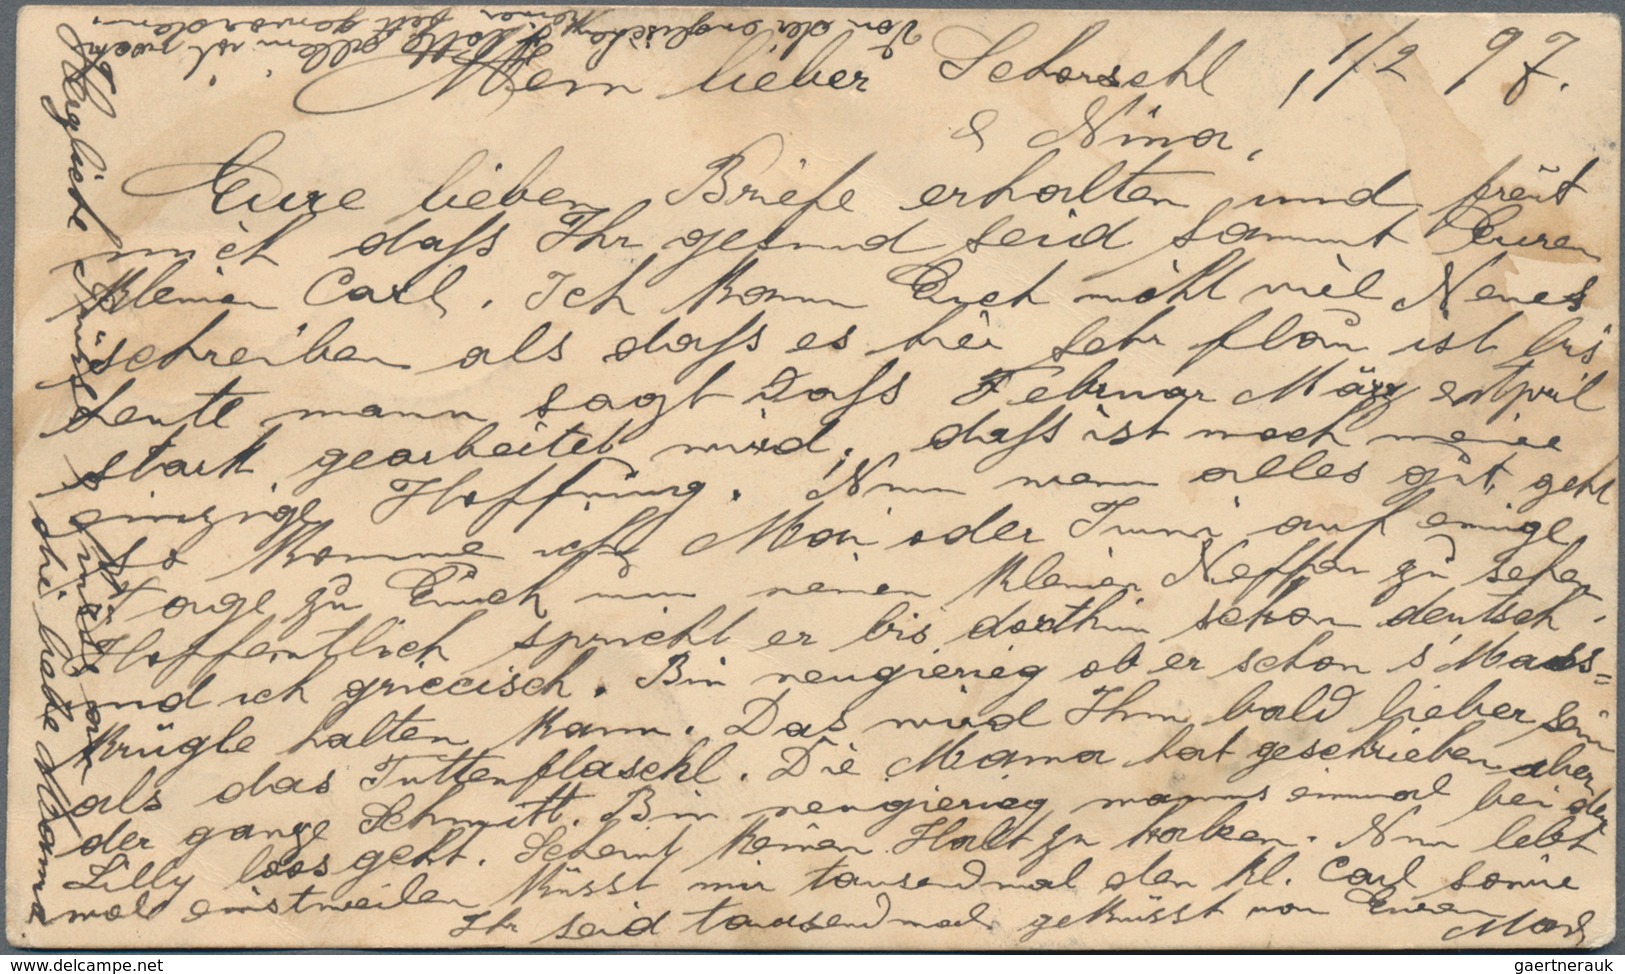 Mein lieber Schorschl 1/2 97.
& Nina,
Eure lieben Briefe erhalten und freut
mich daß Ihr gesund seid sammt Euren
kleinen Carl. Ich kann Euch nicht viel Neues
schreiben als daß es hier sehr flau ist bis
heute mann sagt Daß Februar März & April
stark gearbeitet wird, daß ist noch meine
einzige Hoffnung. Nun wenn alles gut geht
so komme ich Mai oder Juni auf einige
Tage zu Euch um meinen kleinen Neffen zu sehen.
Hoffentlich spricht er bis dorthin schon deutsch
und ich griecisch. Bin neugierieg ob er schon s'Mass-
krügle halten kann. Das wird Ihm bald lieber sein
als das Tuttenflaschl. Die Mama hat geschrieben aber
der ganze Schmitt. Bin neugierieg wanns einmal bei der
Lilly loos geht. Scheint keinen Halt zu haben. Nun lebt
wol einstweilen küsst mir tausendmal den kl. Carl sowie
Ihr seid tausendmal geküsst von Euren
Max
Herzliche Grüße an
die liebe Mama
Von der englischen Flotte
allem ist noch keiner fett geworden.